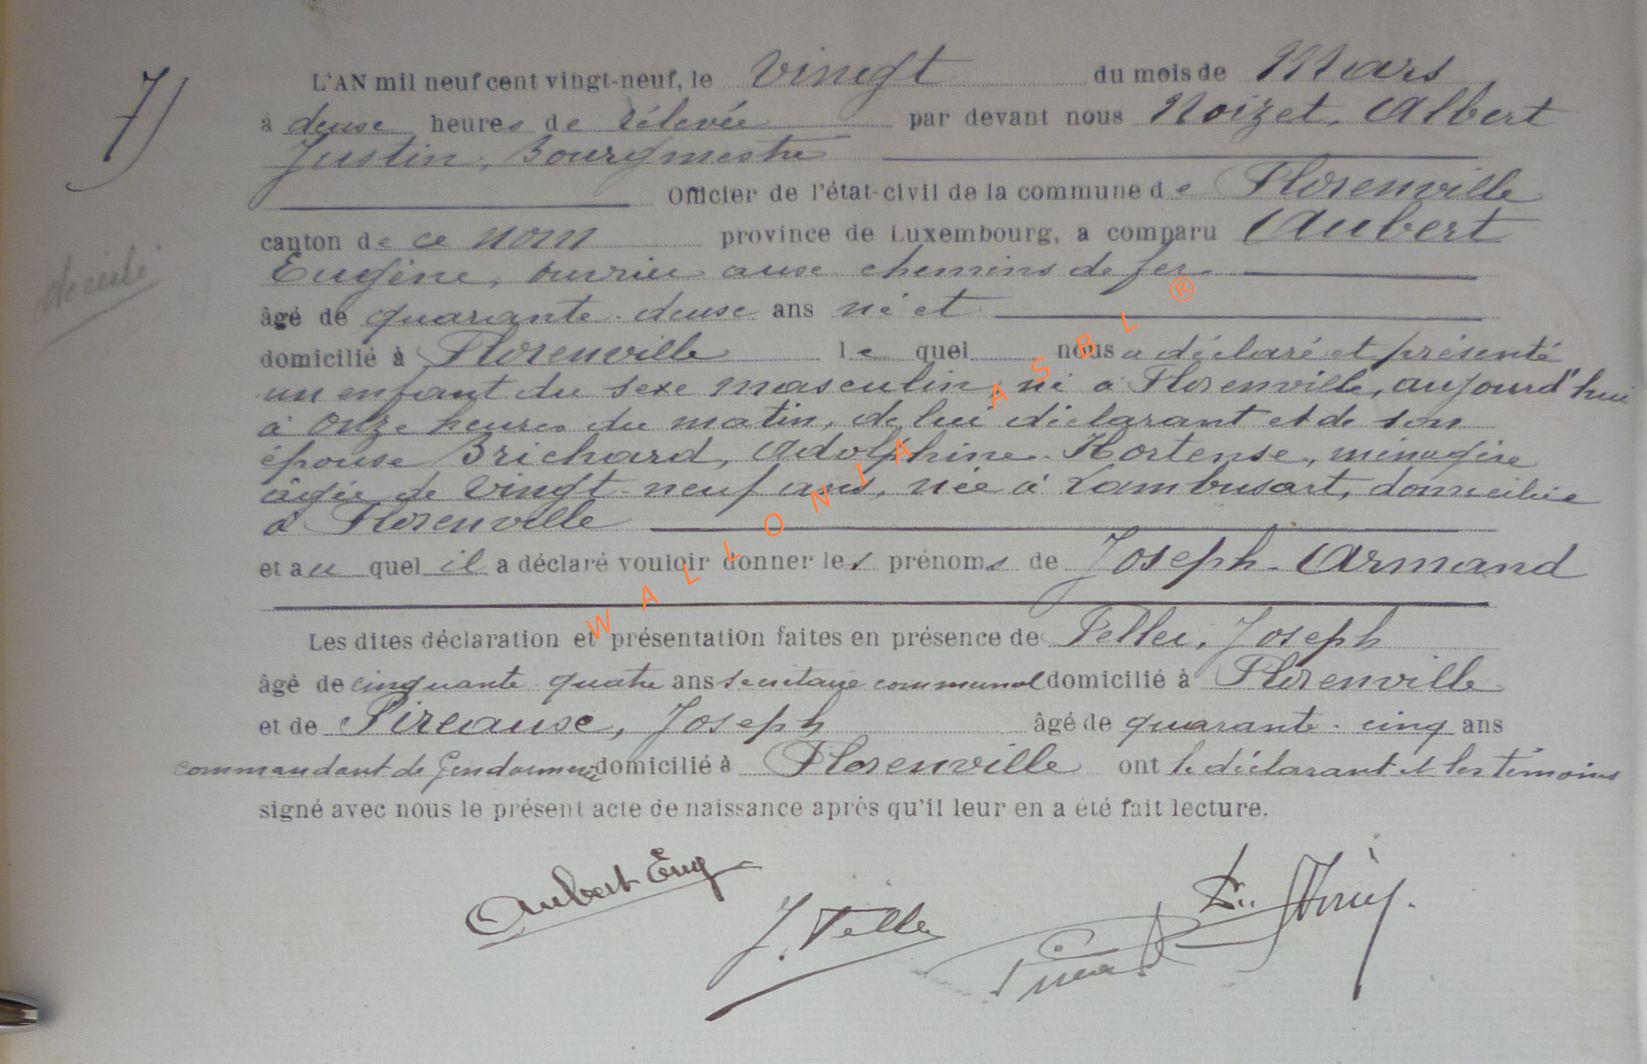 7)
L'AN mil neuf cent vingt-neuf, le vingt du mois de Mars
à deux heures de rélevée par devant nous Noizet, Albert
Justin, Bourgmestre
Officier de l'état-civil de la commune de Florenville
canton de ce nom province de Luxembourg, a comparu Aubert
Eugène, ouvrier aux chemins de fer
âgé de quarante-deux ans né et
domicilié à Florenville le quel nous a déclaré et présenté
un enfant du sexe masculin, né à Florenville, aujourd'hui
à onze heures du matin, de lui déclarant et de son
épouse Brichard, Adolphine-Hortense, ménagère
âgée de vingt-neuf ans, née à Lambusart, domiciliée
à Florenville
et au quel il a déclaré vouloir donner les prénoms de Joseph-Armand
Les dites déclaration et présentation faites en présence de Joseph
âgé de cinquante-quatre ans secrétaire communal domicilié à Florenville
et de Pireaux, Joseph âgé de quarante-cinq ans
commandant de gendarmerie domicilié à Florenville ont le déclarant et les témoins
signé avec nous le présent acte de naissance après qu'il leur en a été fait lecture.
Aubert Eug
WALLONIA ASBL ®